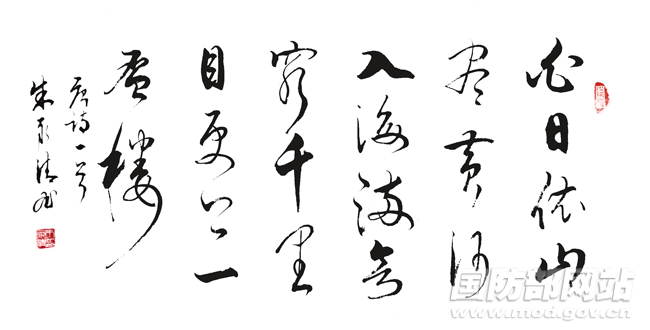 白日依山
尽黄河
入海流欲
穷千里
目更上一
层楼
唐诗一首
朱
国防部网站
www.mod.gov.cn